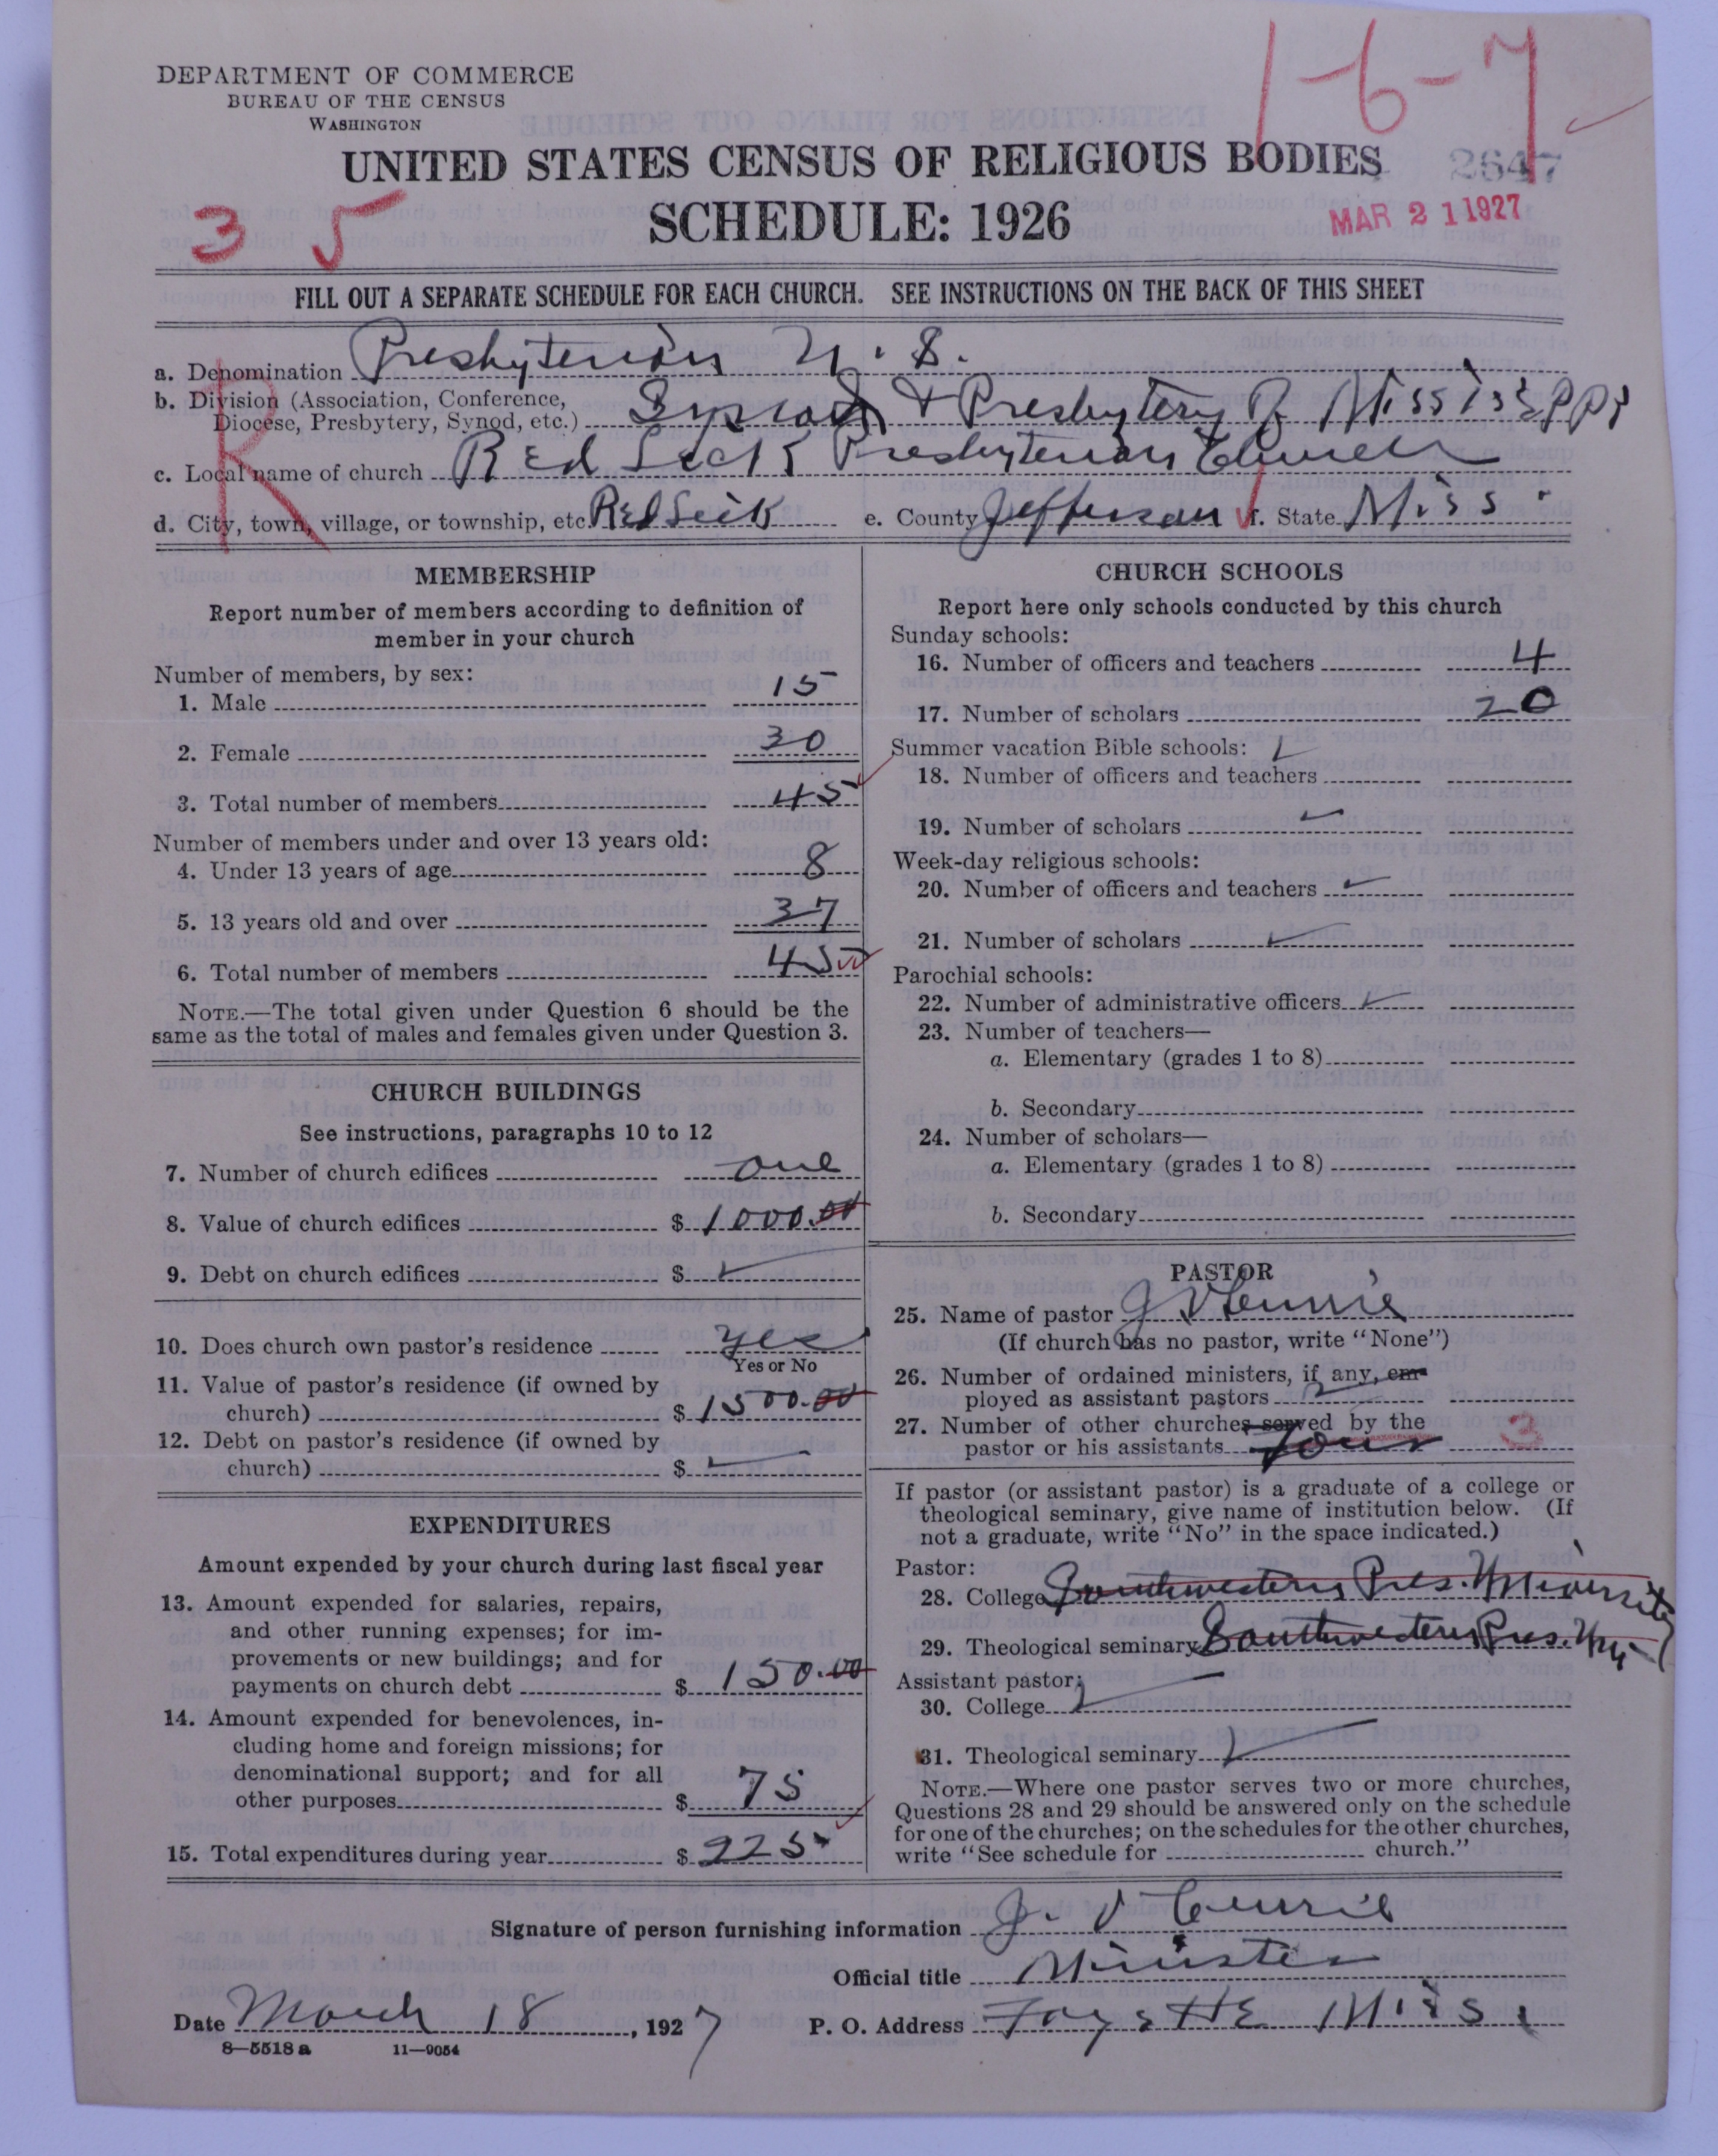 DEPARTMENT OF COMMERCE
BUREAU OF THE CENSUS
WASHINGTON
1-6-7
UNITED STATES CENSUS OF RELIGIOUS BODIES
2647
SCHEDULE: 1926
MAR 21 1927
3 5
FILL OUT A SEPARATE SCHEDULE FOR EACH CHURCH. SEE INSTRUCTIONS ON THE BACK OF THIS SHEET
R
a. Denomination Presbyterian U.S.
b. Division (Association, Conference,
Diocese, Presbytery, Synod, etc.) Synod & Presbytery of Mississippi
c. Local name of church Red Lick Presbyterian Church
d. City, town, village, or township, etc. Red Lick e. County Jefferson f. State Miss.
MEMBERSHIP
Report number of members according to definition of
member in your church
Number of members, by sex:
1. Male 15
2. Female 30
3. Total number of members 45
Number of members under and over 13 years old:
4. Under 13 years of age 8
5. 13 years old and over 37
6. Total number of members 45
NOTE.—The total given under Question 6 should be the
same as the total of males and females given under Question 3.
CHURCH BUILDINGS
See instructions, paragraphs 10 to 12
7. Number of church edifices one
8. Value of church edifices $ 1000.00
9. Debt on church edifices $
10. Does church own pastor's residence yes
Yes or No
11. Value of pastor's residence (if owned by
church) $ 1500.00
12. Debt on pastor's residence (if owned by
church) $
EXPENDITURES
Amount expended by your church during last fiscal year
13. Amount expended for salaries, repairs,
and other running expenses; for im-
provements or new buildings; and for
payments on church debt $ 150.00
14. Amount expended for benevolences, in-
cluding home and foreign missions; for
denominational support; and for all
other purposes $ 75
15. Total expenditures during year $ 225
CHURCH SCHOOLS
Report here only schools conducted by this church
Sunday schools:
16. Number of officers and teachers 4
17. Number of scholars 20
Summer vacation Bible schools:
18. Number of officers and teachers
19. Number of scholars
Week-day religious schools:
20. Number of officers and teachers
21. Number of scholars
Parochial schools:
22. Number of administrative officers
23. Number of teachers—
a. Elementary (grades 1 to 8)
b. Secondary
24. Number of scholars—
a. Elementary (grades 1 to 8)
b. Secondary
PASTOR
25. Name of pastor J V Currie
(If church has no pastor, write "None")
26. Number of ordained ministers, if any, em-
ployed as assistant pastors
27. Number of other churches served by the
pastor or his assistants four 3
If pastor (or assistant pastor) is a graduate of a college or
theological seminary, give name of institution below. (If
not a graduate, write "No" in the space indicated.)
Pastor:
28. College Southwestern Pres. University
29. Theological seminary Southwestern Pres. Uni
Assistant pastor:
30. College
31. Theological seminary
NOTE.—Where one pastor serves two or more churches,
Questions 28 and 29 should be answered only on the schedule
for one of the churches; on the schedules for the other churches,
write "See schedule for church."
Signature of person furnishing information J. V Currie
Official title Minister
Date March 18, 1927 P. O. Address Fayette Miss.
8—5518 a 11—9054